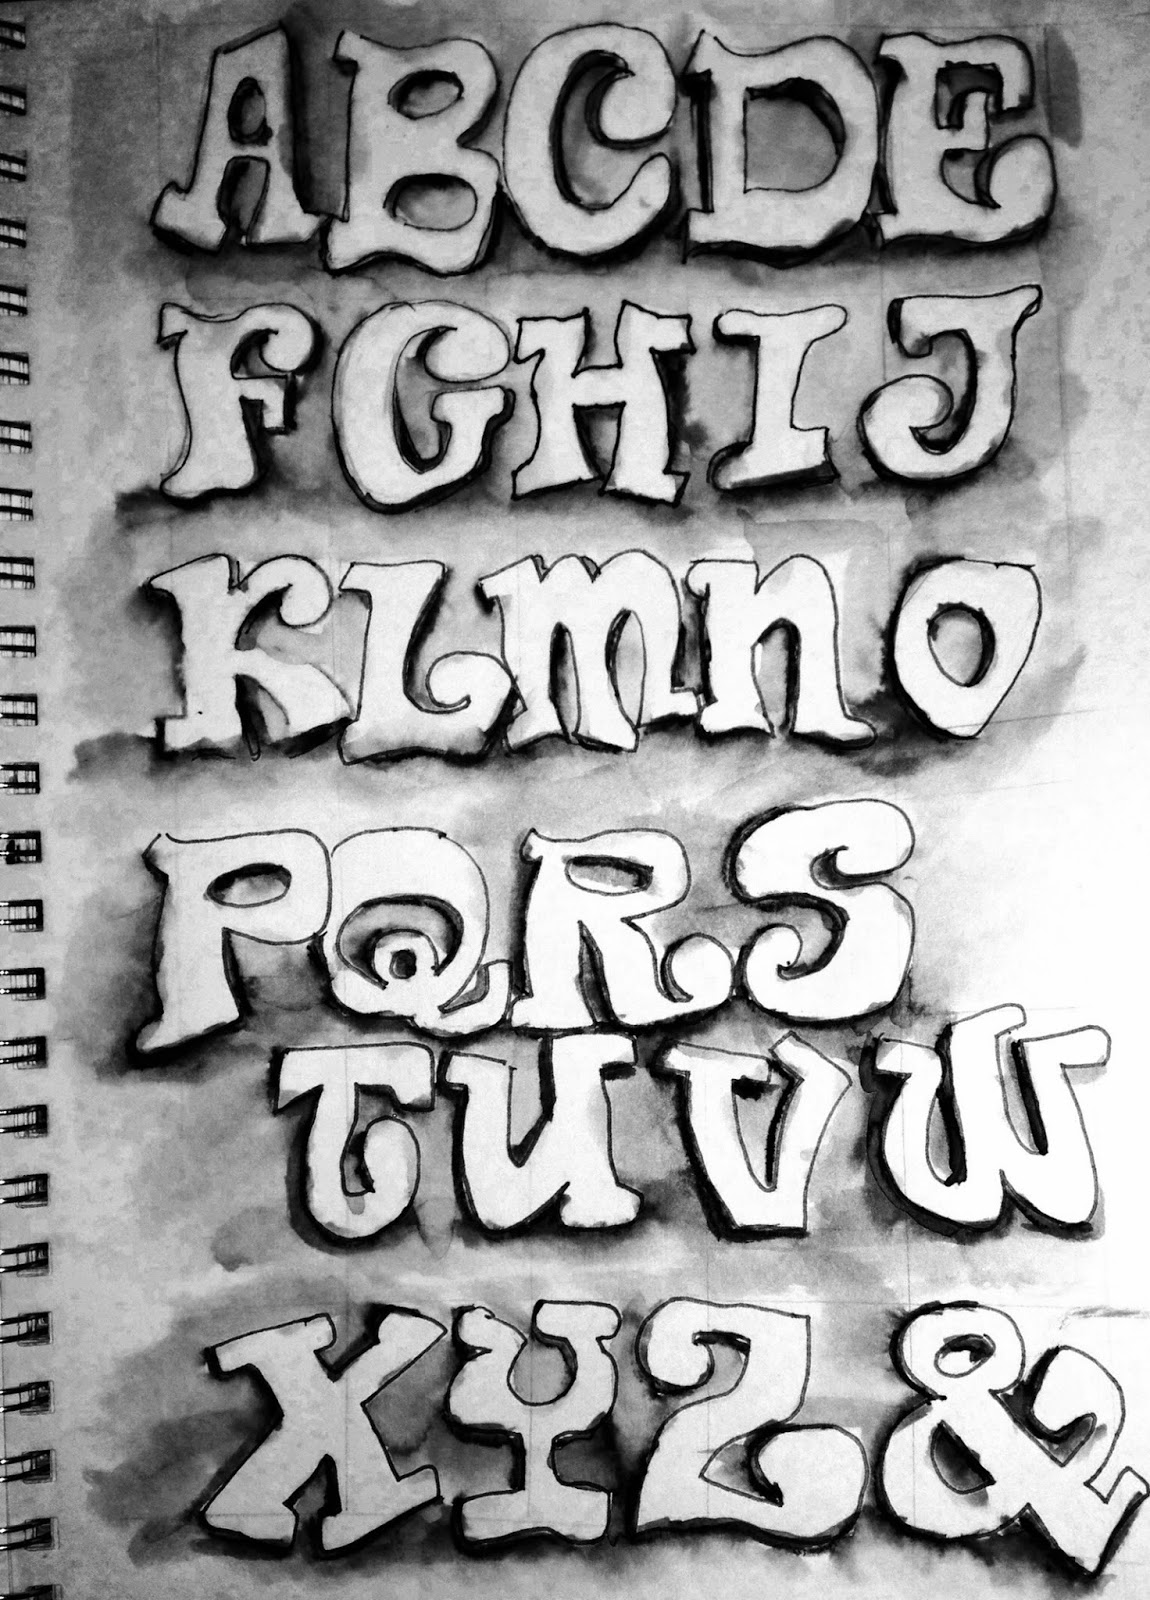 ABCDE
FGHIJ
KLmnO
PQRS
TUVW
XYZ&